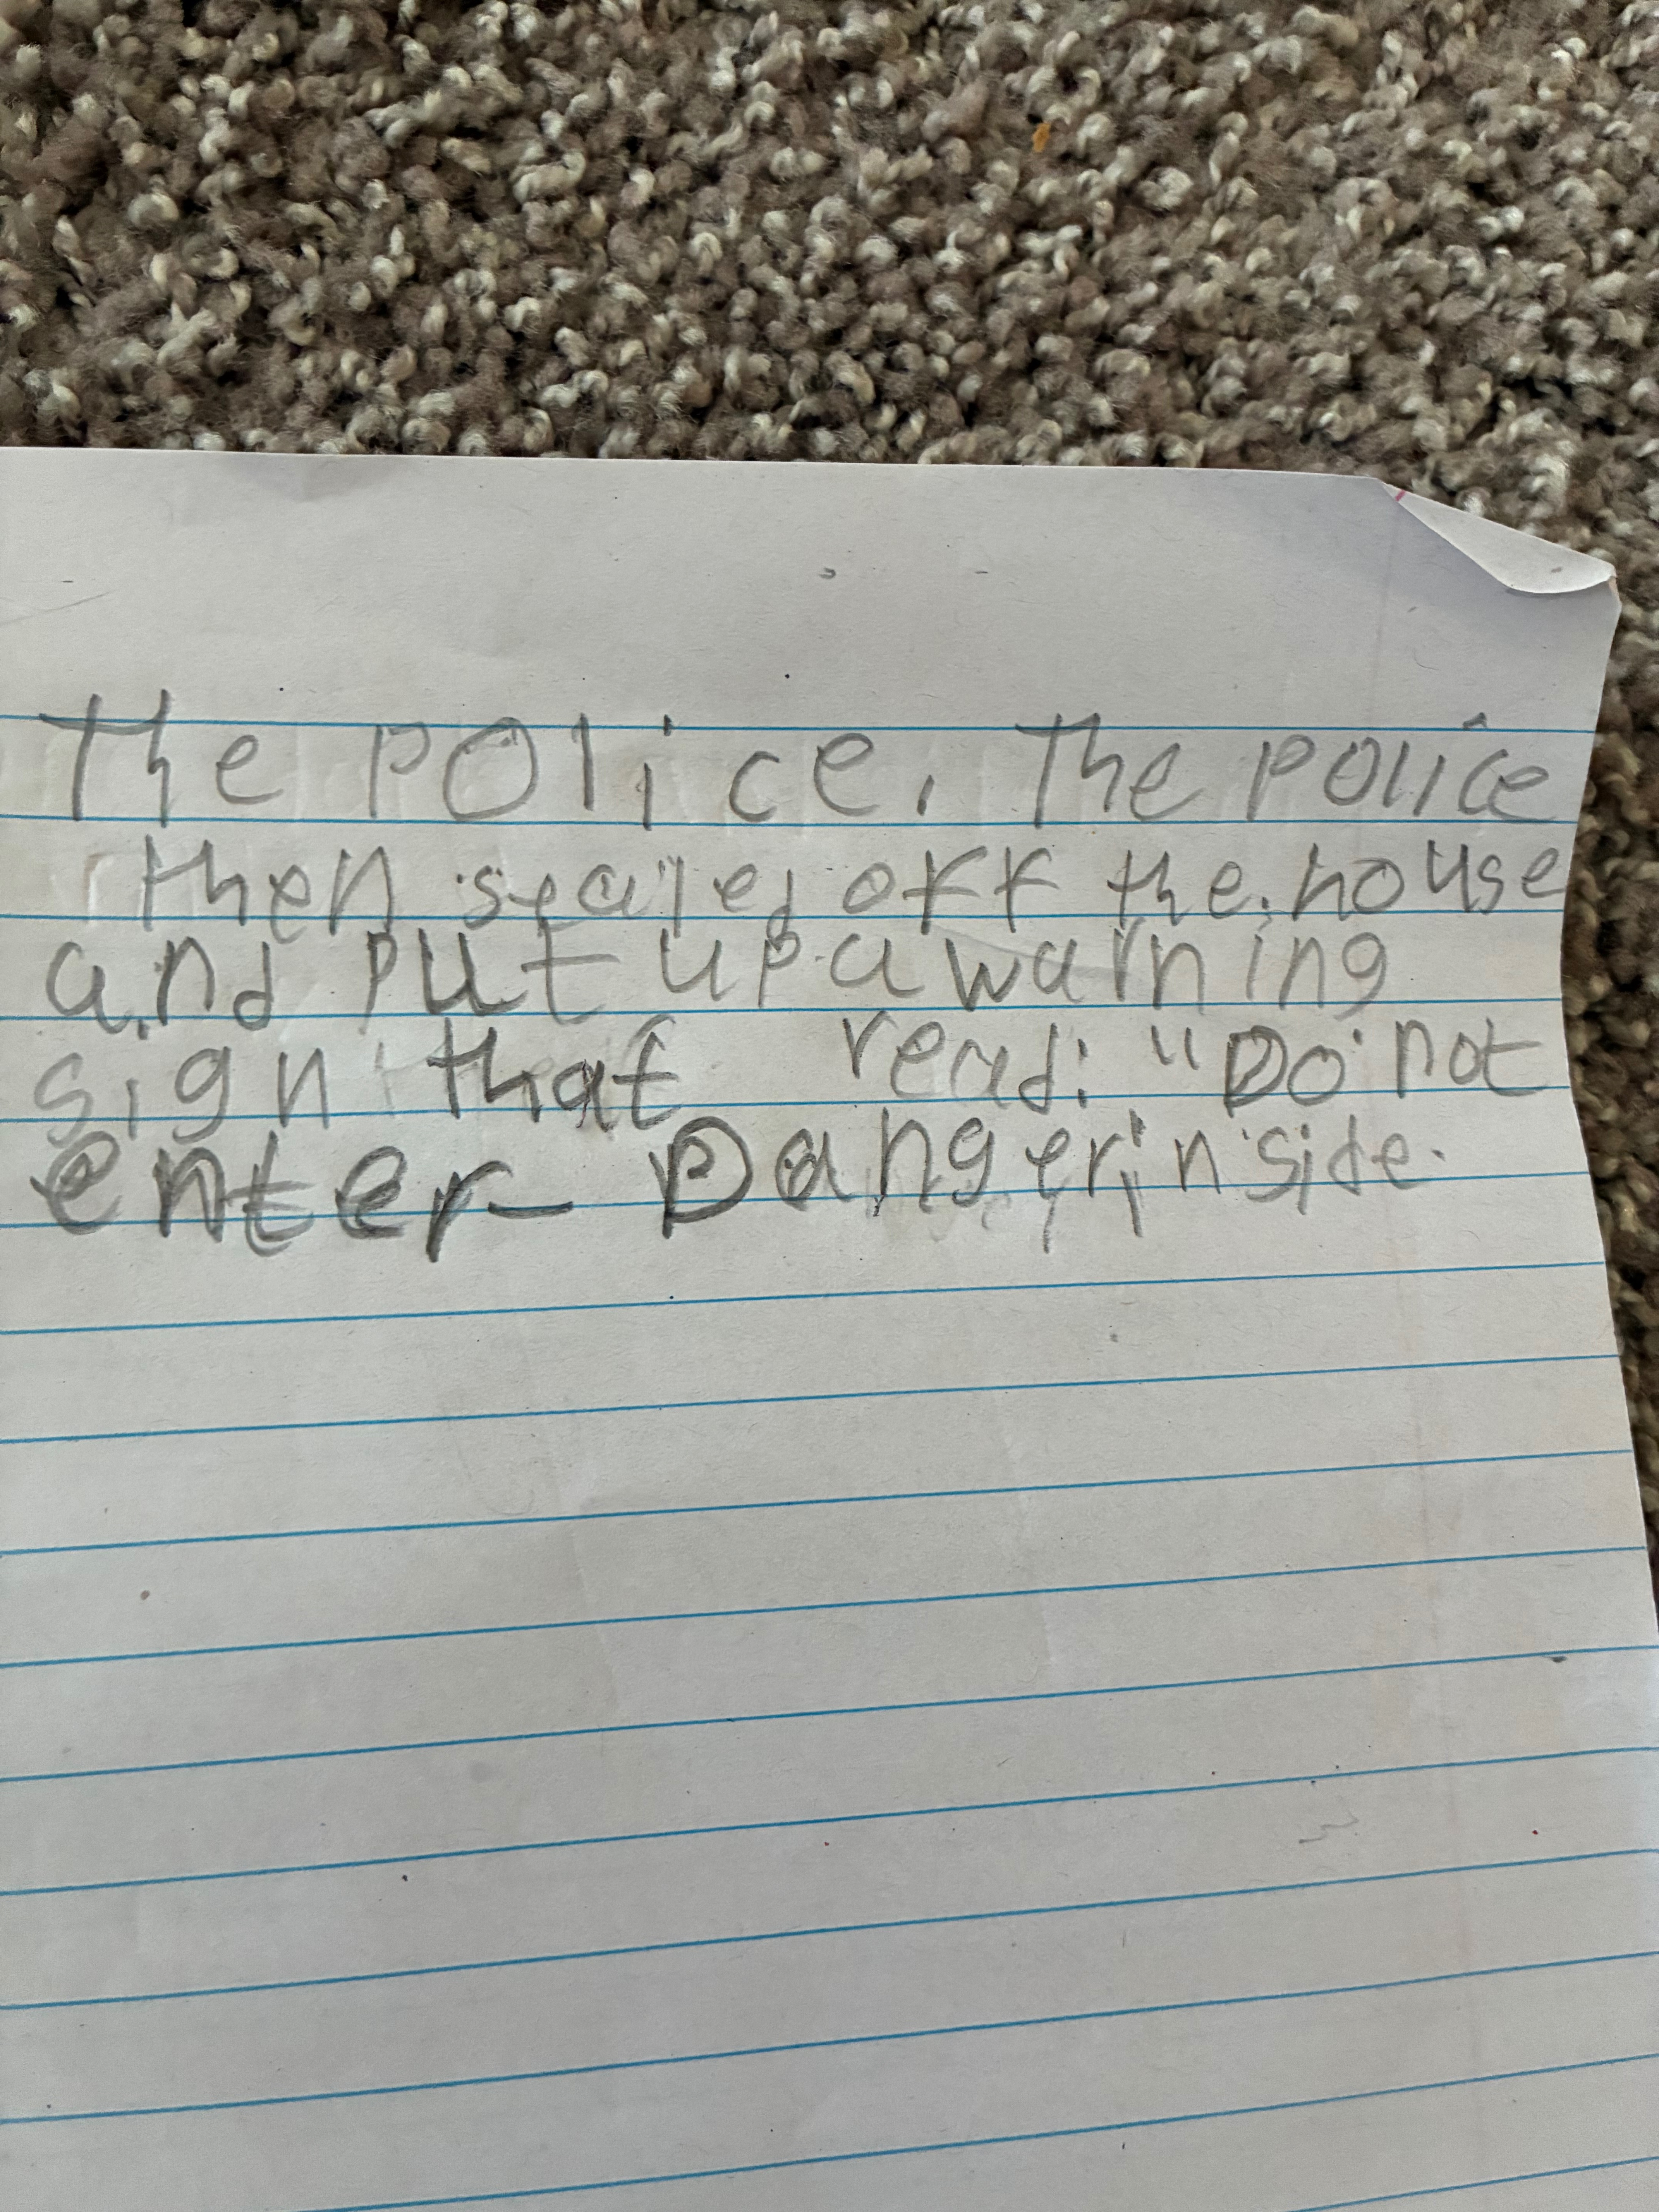 The police. The police
then sealed off the house
and put up a warning
sign that read: "Do not
enter- Danger inside.